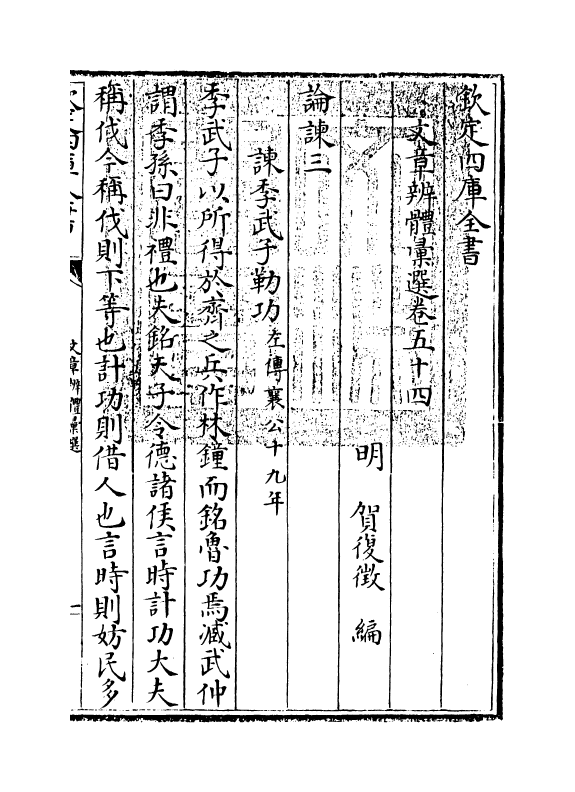 欽定四庫全書
文章辨體彚選卷五十四
明 賀復徵 編
論諫三
諫季武子勒功左傳襄公十九年
季武子以所得於齊之兵作林鐘而銘魯功焉臧武仲
謂季孫曰非禮也夫銘天子令德諸侯言時計功大夫
稱伐今稱伐則下等也計功則借人也言時則妨民多
文章辨體彚選
一